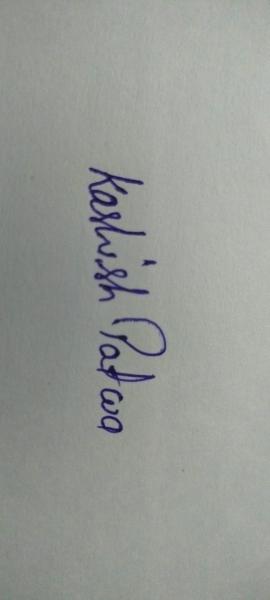 Kashish Patwa